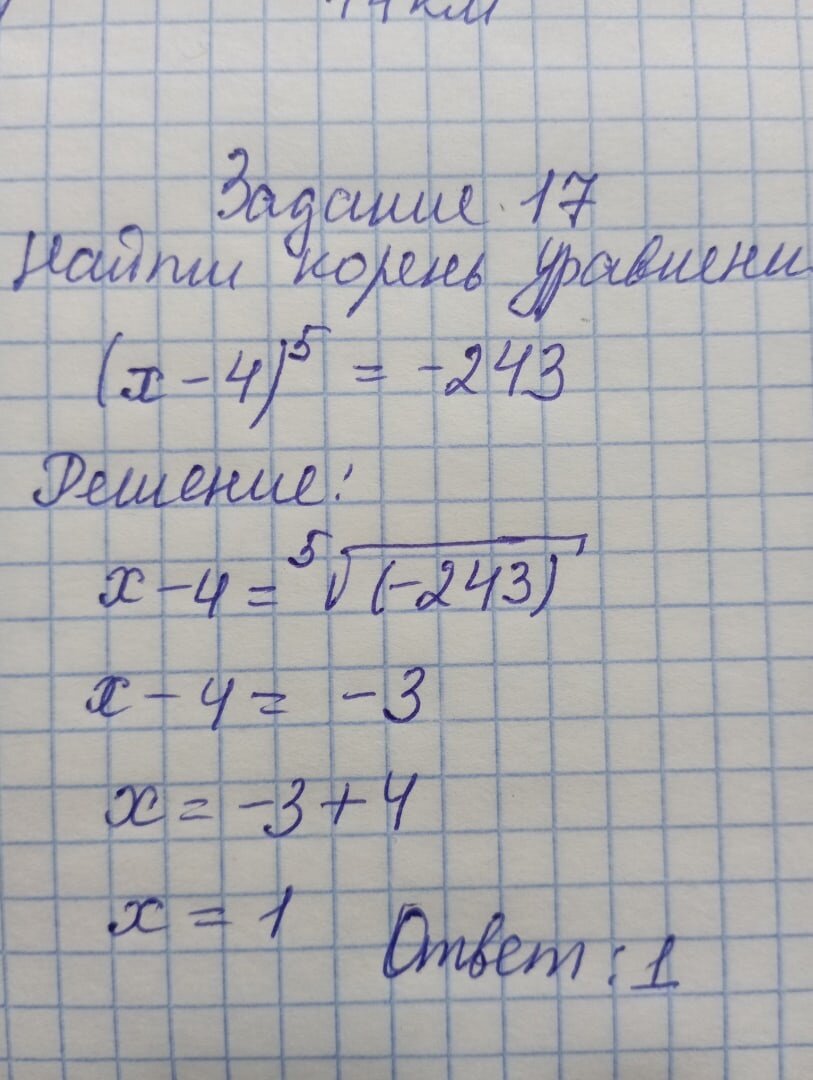 14 км
Задание 17
Найти корень уравнени
(x - 4)⁵ = -243
Решение:
x - 4 = ⁵√(-243)
x - 4 = -3
x = -3 + 4
x = 1
Ответ: 1